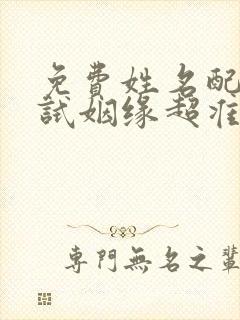 免費姓名配
試姻缘超准
專門無名之輩